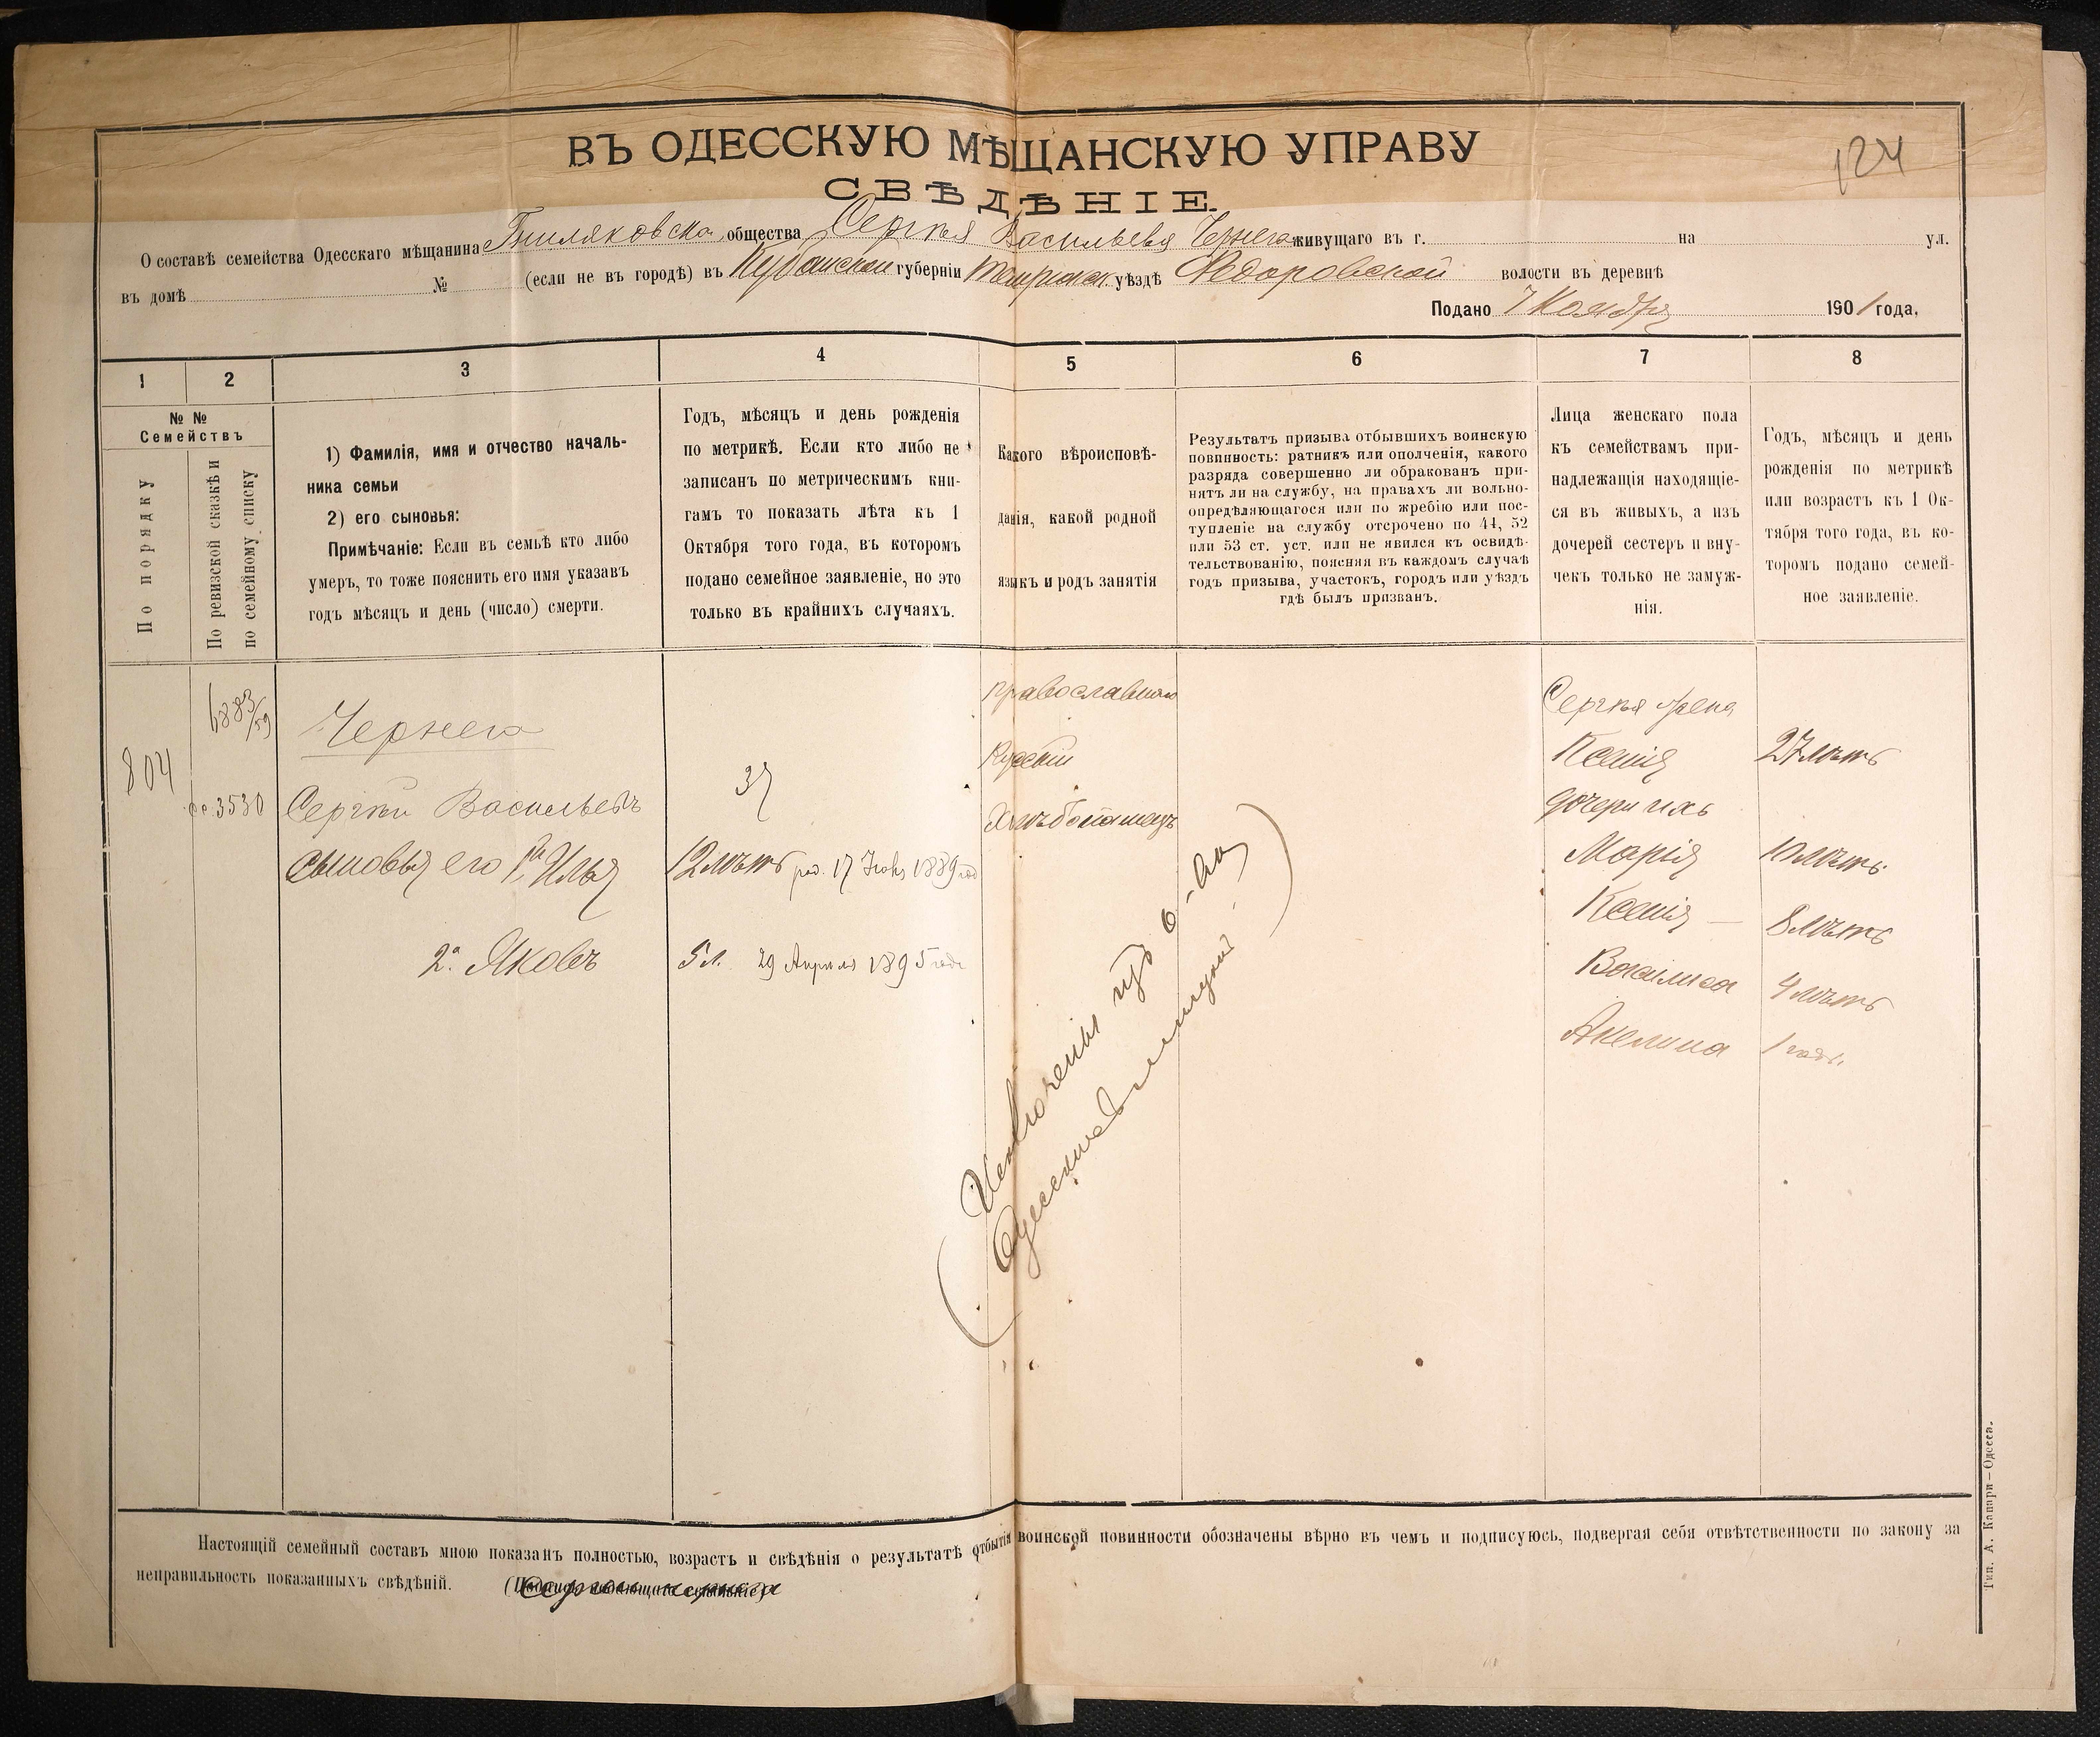 124
ВЪ ОДЕССКУЮ МѢЩАНСКУЮ УПРАВУ
СВѢДѢНІЕ.
О составѣ семейства Одесскаго мѣщанина Гниляковска. общества Сергѣя Васильева Чернега живущаго въ г. на ул.
въ домѣ № (если не въ городѣ) въ Кубанской губерніи Темрюкск. уѣздѣ Федоровской волости въ деревнѣ
Подано 7 Ноября 1901 года.
1 2 3 4 5 6 7 8
№ №
Семействъ
По порядку
По ревизской сказкѣ и
по семейному списку
1) Фамилія, имя и отчество началь-
ника семьи
2) его сыновья:
Примѣчаніе: Если въ семьѣ кто либо
умеръ, то тоже пояснить его имя указавъ
годъ мѣсяцъ и день (число) смерти.
Годъ, мѣсяцъ и день рожденія
по метрикѣ. Если кто либо не
записанъ по метрическимъ кни-
гамъ то показать лѣта къ 1
Октября того года, въ которомъ
подано семейное заявленіе, но это
только въ крайнихъ случаяхъ.
Какого вѣроисповѣ-
данія, какой родной
языкъ и родъ занятія
Результатъ призыва отбывшихъ воинскую
повинность: ратникъ или ополченія, какого
разряда совершенно ли обракованъ при-
нятъ ли на службу, на правахъ ли вольно-
опредѣляющагося или по жребію или пос-
тупленіе на службу отсрочено по 44, 52
или 53 ст. уст. или не явился къ освидѣ-
тельствованію, поясняя въ каждомъ случаѣ
годъ призыва, участокъ, городъ или уѣздъ
гдѣ былъ призванъ.
Лица женскаго пола
къ семействамъ при-
надлежащія находящіе-
ся въ живыхъ, а изъ
дочерей сестеръ и вну-
чекъ только не замуж-
нія.
Годъ, мѣсяцъ и день
рожденія по метрикѣ
или возрастъ къ 1 Ок-
тября того года, въ ко-
торомъ подано семей-
ное заявленіе.
804
6883/59
3530
Чернега
Сергѣй Васильевъ 37
сыновья его 1й Илья 12 лѣтъ род. 17 1889 год
2й Яковъ 5 л. 29 Апрѣля 1895 года
православнаго
Русскій
Хлѣбопашецъ
(Исключены изъ о-ва
Одесских мещанъ)
Сергѣя жена
Ксенія 27 лѣтъ
дочери ихъ
Марія 10 лѣтъ
Ксенія — 8 лѣтъ
Василиса 4 лѣтъ
Акелина 1 годъ.
Настоящій семейный составъ мною показанъ полностью, возрастъ и свѣдѣнія о результатѣ отбытія воинской повинности обозначены вѣрно въ чемъ и подписуюсь, подвергая себя отвѣтственности по закону за
неправильность показанныхъ свѣдѣній.
Тип. А. Капари—Одесса.